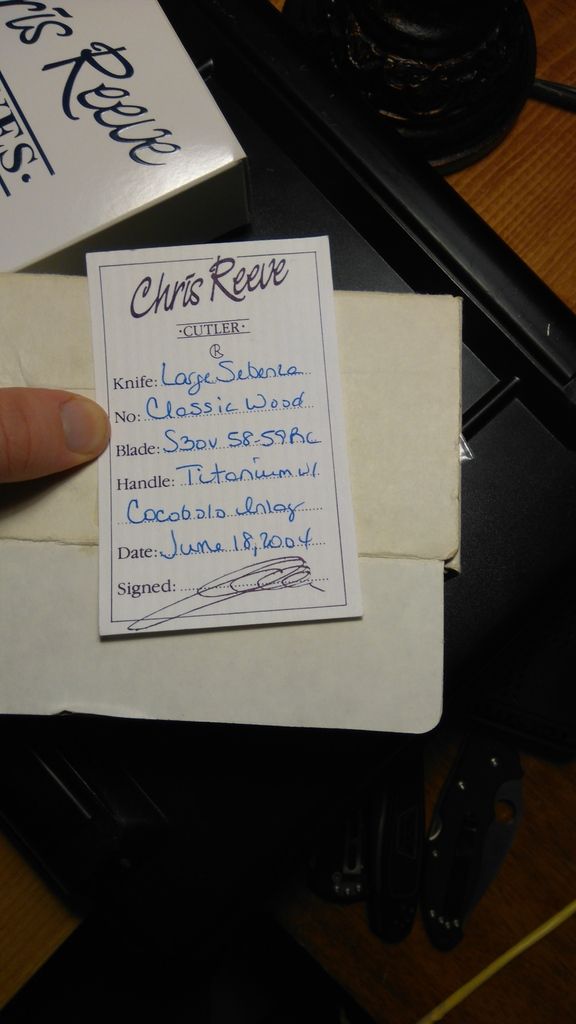 ris Reeve
ES.
Chris Reeve
·CUTLER·
®
Knife: Large Sebenza
No: Classic Wood
Blade: S30V 58-59Rc
Handle: Titanium w/
Cocobolo Inlay
Date: June 18, 2004
Signed: